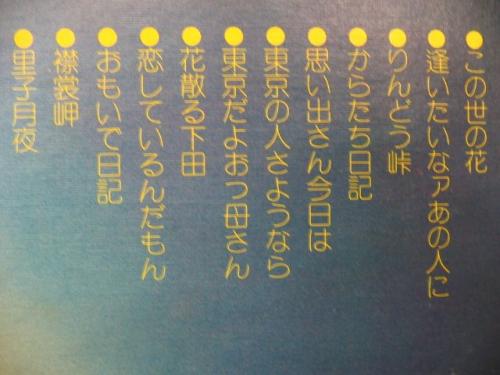 ●この世の花
●逢いたいなァあの人に
●りんどう峠
●からたち日記
●思い出さん今日は
●東京の人さようなら
●東京だよおっ母さん
●花散る下田
●恋しているんだもん
●おもいで日記
●襟裳岬
●里子月夜